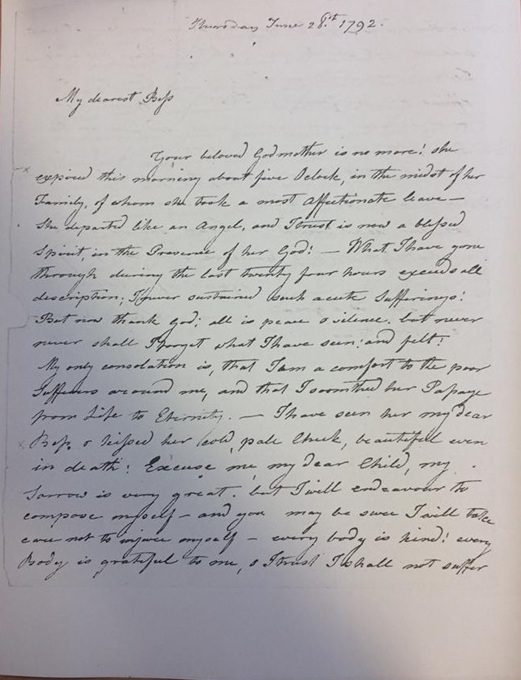 Thursday June 28.st 1792.
My dearest Bess
Your beloved Godmother is no more! she
expired this morning about five Oclock, in the midst of her
Family, of whom she took a most Affectionate leave —
She departed like an Angel, and I trust is now a blessed
Spirit, in the Presence of her God! — What I have gone
through during the last twenty four hours exceeds all
description; I never sustained such acute Sufferings!
But now thank God; all is peace & silence, but never
never shall I forget what I have seen; and felt!
My only consolation is, that I am a comfort to the poor
Sufferers around me, and that I soothed her Passage
from Life to Eternity. — I have seen her my dear
Bess, & kissed her cold, pale Cheek, beautiful even
in death! Excuse me, my dear Child, my
Sorrow is very great. but I will endeavour to
compose myself — and you may be sure I will take
care not to injure myself — every body is kind! every
Body is grateful to me, & I trust I shall not suffer